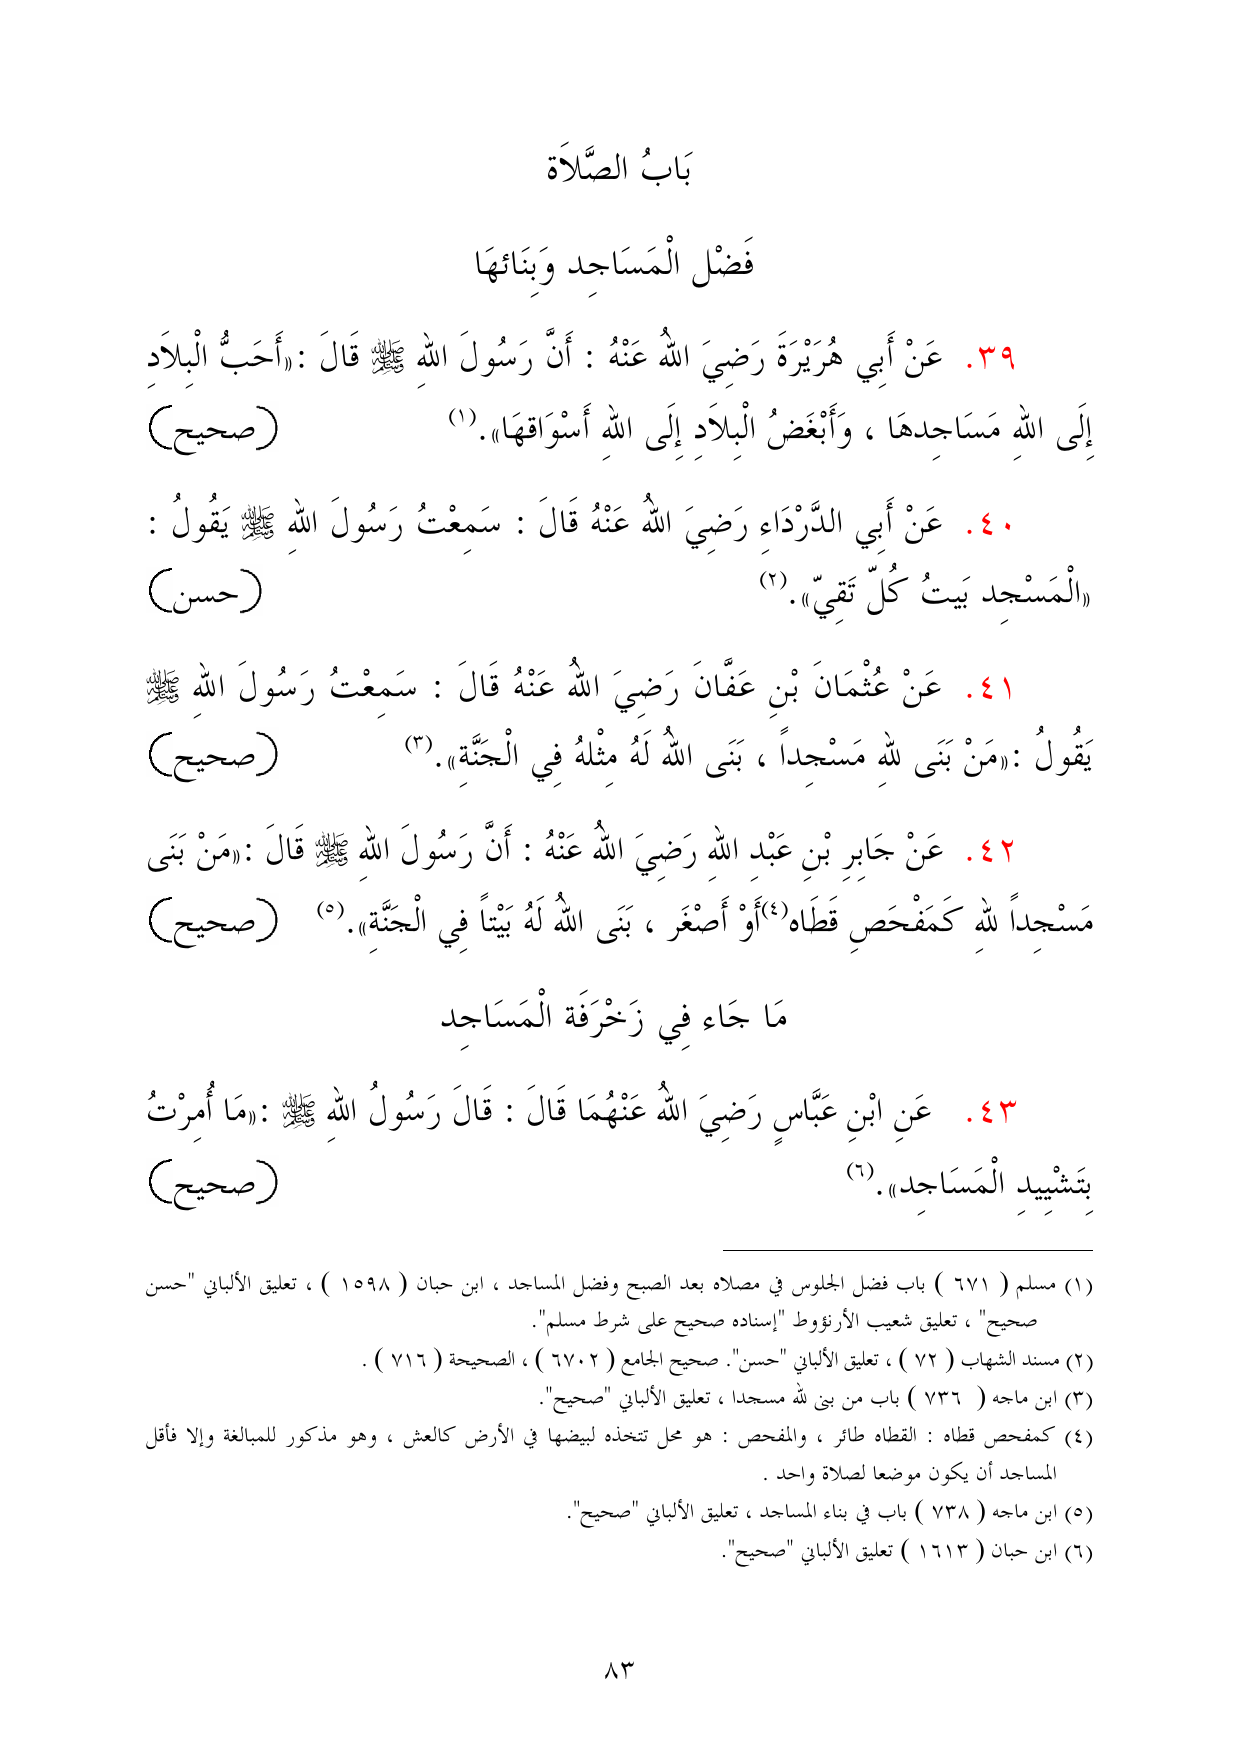 بَابُ الصَّلاَة
فَضْل الْمَسَاجِد وَبِنَائهَا
٣٩. عَنْ أَبِي هُرَيْرَةَ رَضِيَ اللهُ عَنْهُ : أَنَّ رَسُولَ اللهِ ﷺ قَالَ :«أَحَبُّ الْبِلاَدِ
إِلَى اللهِ مَسَاجِدهَا ، وَأَبْغَضُ الْبِلاَدِ إِلَى اللهِ أَسْوَاقهَا».(١) (صحيح)
٤٠. عَنْ أَبِي الدَّرْدَاءِ رَضِيَ اللهُ عَنْهُ قَالَ : سَمِعْتُ رَسُولَ اللهِ ﷺ يَقُولُ :
«الْمَسْجِد بَيتُ كُلّ تَقِيّ».(٢) (حسن)
٤١. عَنْ عُثْمَانَ بْنِ عَفَّانَ رَضِيَ اللهُ عَنْهُ قَالَ : سَمِعْتُ رَسُولَ اللهِ ﷺ
يَقُولُ :«مَنْ بَنَى للهِ مَسْجِداً ، بَنَى اللهُ لَهُ مِثْلهُ فِي الْجَنَّةِ».(٣) (صحيح)
٤٢. عَنْ جَابِرِ بْنِ عَبْدِ اللهِ رَضِيَ اللهُ عَنْهُ : أَنَّ رَسُولَ اللهِ ﷺ قَالَ :«مَنْ بَنَى
مَسْجِداً للهِ كَمَفْحَصِ قَطَاه(٤)أَوْ أَصْغَر ، بَنَى اللهُ لَهُ بَيْتاً فِي الْجَنَّةِ».(٥) (صحيح)
مَا جَاء فِي زَخْرَفَة الْمَسَاجِد
٤٣. عَنِ ابْنِ عَبَّاسٍ رَضِيَ اللهُ عَنْهُمَا قَالَ : قَالَ رَسُولُ اللهِ ﷺ :«مَا أُمِرْتُ
بِتَشْيِيدِ الْمَسَاجِد».(٦) (صحيح)
(١) مسلم ( ٦٧١ ) باب فضل الجلوس في مصلاه بعد الصبح وفضل المساجد ، ابن حبان ( ١٥٩٨ ) ، تعليق الألباني "حسن
صحيح" ، تعليق شعيب الأرنؤوط "إسناده صحيح على شرط مسلم".
(٢) مسند الشهاب ( ٧٢ ) ، تعليق الألباني "حسن". صحيح الجامع ( ٦٧٠٢ ) ، الصحيحة ( ٧١٦ ) .
(٣) ابن ماجه ( ٧٣٦ ) باب من بنى لله مسجدا ، تعليق الألباني "صحيح".
(٤) كمفحص قطاه : القطاه طائر ، والمفحص : هو محل تتخذه لبيضها في الأرض كالعش ، وهو مذكور للمبالغة وإلا فأقل
المساجد أن يكون موضعا لصلاة واحد .
(٥) ابن ماجه ( ٧٣٨ ) باب في بناء المساجد ، تعليق الألباني "صحيح".
(٦) ابن حبان ( ١٦١٣ ) تعليق الألباني "صحيح".
٨٣